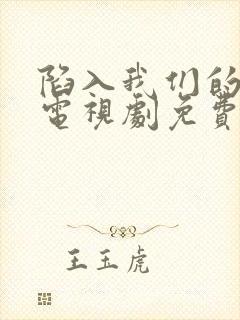 陷入我们的
電視劇免費
王玉虎